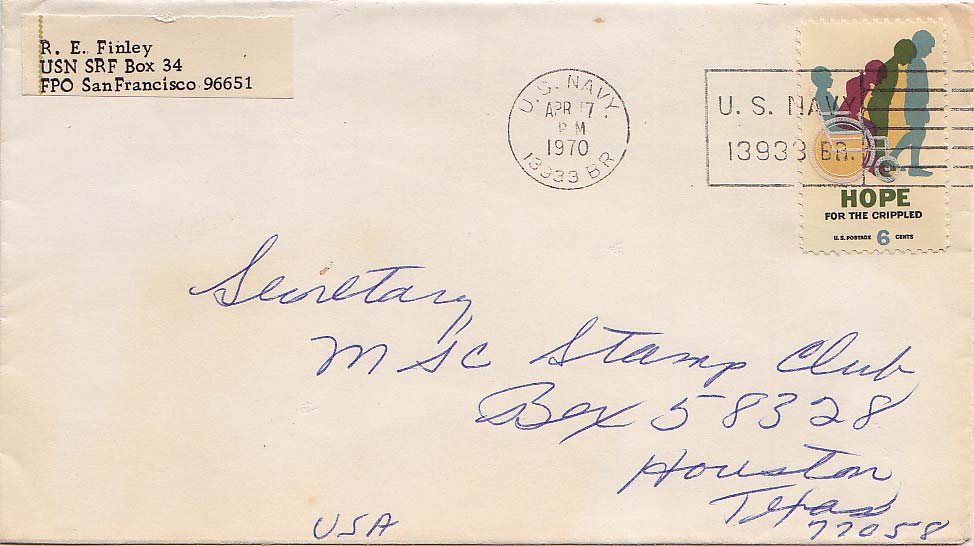 R. E. Finley
USN SRF Box 34
FPO SanFrancisco 96651
U. S. NAVY.
APR 17
PM
1970
13933 BR
U. S. NAVY
13933 BR.
HOPE
FOR THE CRIPPLED
U.S. POSTAGE 6 CENTS
Secretary,
MSC Stamp Club
Box 58328
Houston
Texas
77058
USA